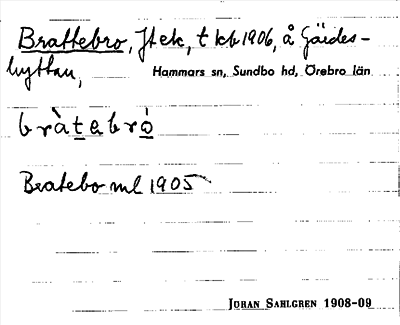 Brattebro, Jtek, t kb 1906, å Gärdes-
hyttan, Hammars sn, Sundbo hd, Örebro län
bràtebrò
Bratebo ml 1905
JOHAN SAHLGREN 1908-09